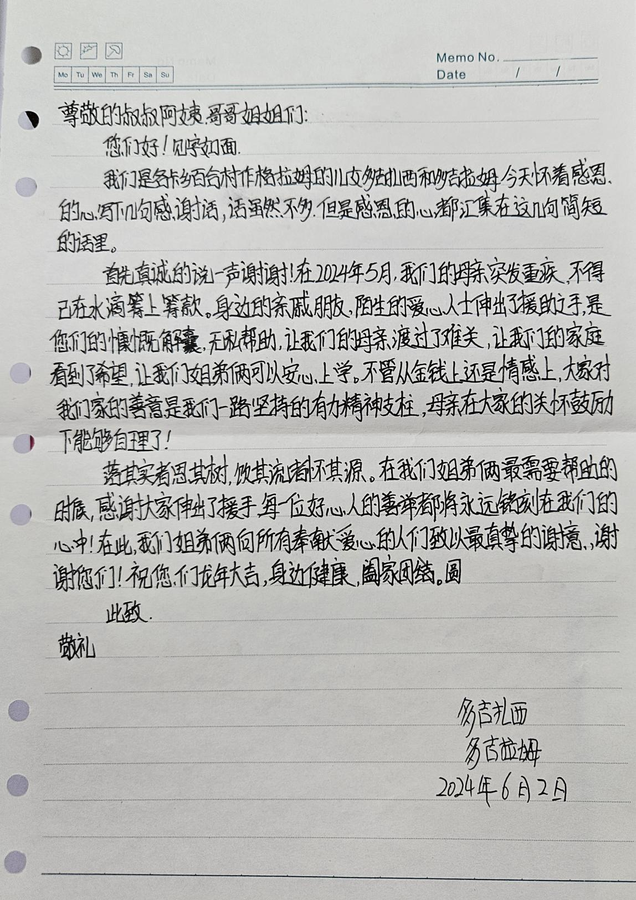 Memo No.
Mo Tu We Th Fr Sa Su
Date / /
尊敬的叔叔阿姨、哥哥姐姐们:
您们好!见字如面.
我们是各卡乡百台村作格拉姆的儿女多吉扎西和多吉拉姆.今天怀着感恩
的心,写下几句感谢话,话虽然不多.但是感恩的心,都汇集在这几句简短
的话里。
首先真诚的说一声谢谢!在2024年5月,我们的母亲突发重疾,不得
已在水滴筹上筹款。身边的亲戚朋友,陌生的爱心人士伸出了援助之手,是
您们的慷慨解囊,无私帮助,让我们的母亲渡过了难关,让我们的家庭
看到了希望,让我们姐弟俩可以安心上学。不管从金钱上还是情感上,大家对
我们家的善意是我们一路坚持的有力精神支柱,母亲在大家的关怀鼓励
下能够自理了!
落其实者思其树,饮其流者怀其源。在我们姐弟俩最需要帮助的
时候,感谢大家伸出了援手,每一位好心人的善举都将永远铭刻在我们的
心中!在此,我们姐弟俩向所有奉献爱心的人们致以最真挚的谢意,谢
谢您们!祝您们龙年大吉,身边健康,阖家团结。圆
此致.
敬礼
多吉扎西
多吉拉姆
2024年6月2日